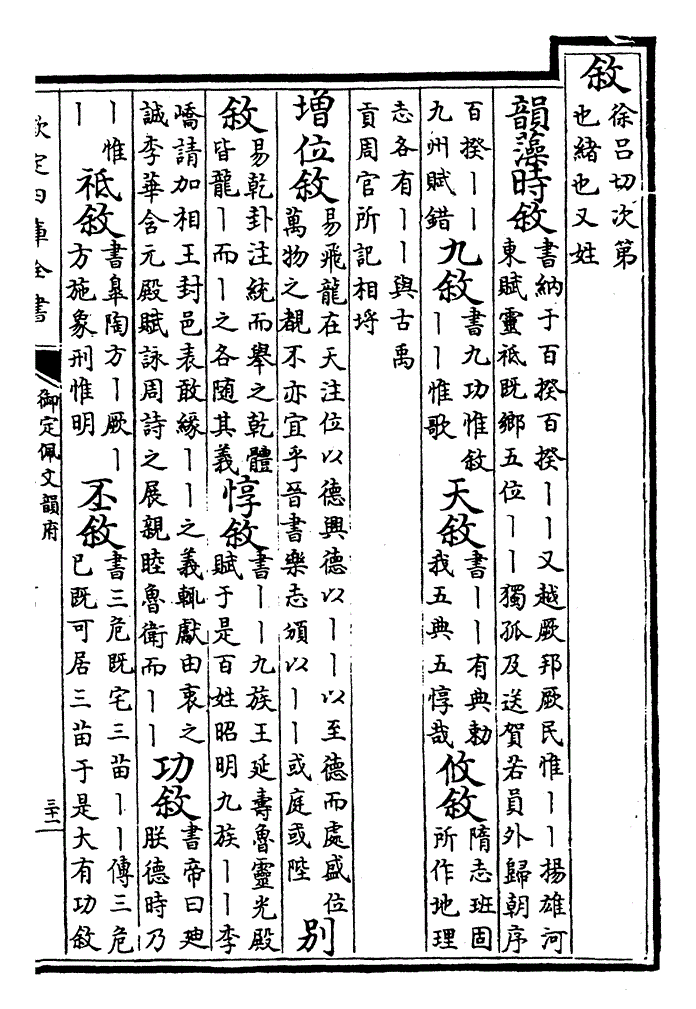 敘徐呂切次第
也緒也又姓
韻藻時敘書納于百揆百揆丨丨又越厥邦厥民惟丨丨揚雄河
東賦靈祇既鄉五位丨丨獨孤及送賀若員外歸朝序
百揆丨丨
九州賦錯
九敘書九功惟敘
丨丨惟歌
天敘書丨丨有典勅
我五典五惇哉
攸敘隋志班固
所作地理
志各有丨丨與古禹
貢周官所記相埒
增位敘易飛龍在天注位以德興德以丨丨以至德而處盛位
萬物之覩不亦宜乎晉書樂志頒以丨丨或庭或陛
別
敘易乾卦注統而舉之乾體
皆龍丨而丨之各隨其義
惇敘書丨丨九族王延壽魯靈光殿
賦于是百姓昭明九族丨丨李
嶠請加相王封邑表敢緣丨丨之義輒獻由衷之
誠李華含元殿賦詠周詩之展親睦魯衛而丨丨
功敘書帝曰廸
朕德時乃
丨惟
丨
祗敘書臯陶方丨厥丨
方施象刑惟明
丕敘書三危既宅三苗丨丨傳三危
已既可居三苗于是大有功敘
欽定四庫全書
御定佩文韻府
三十二